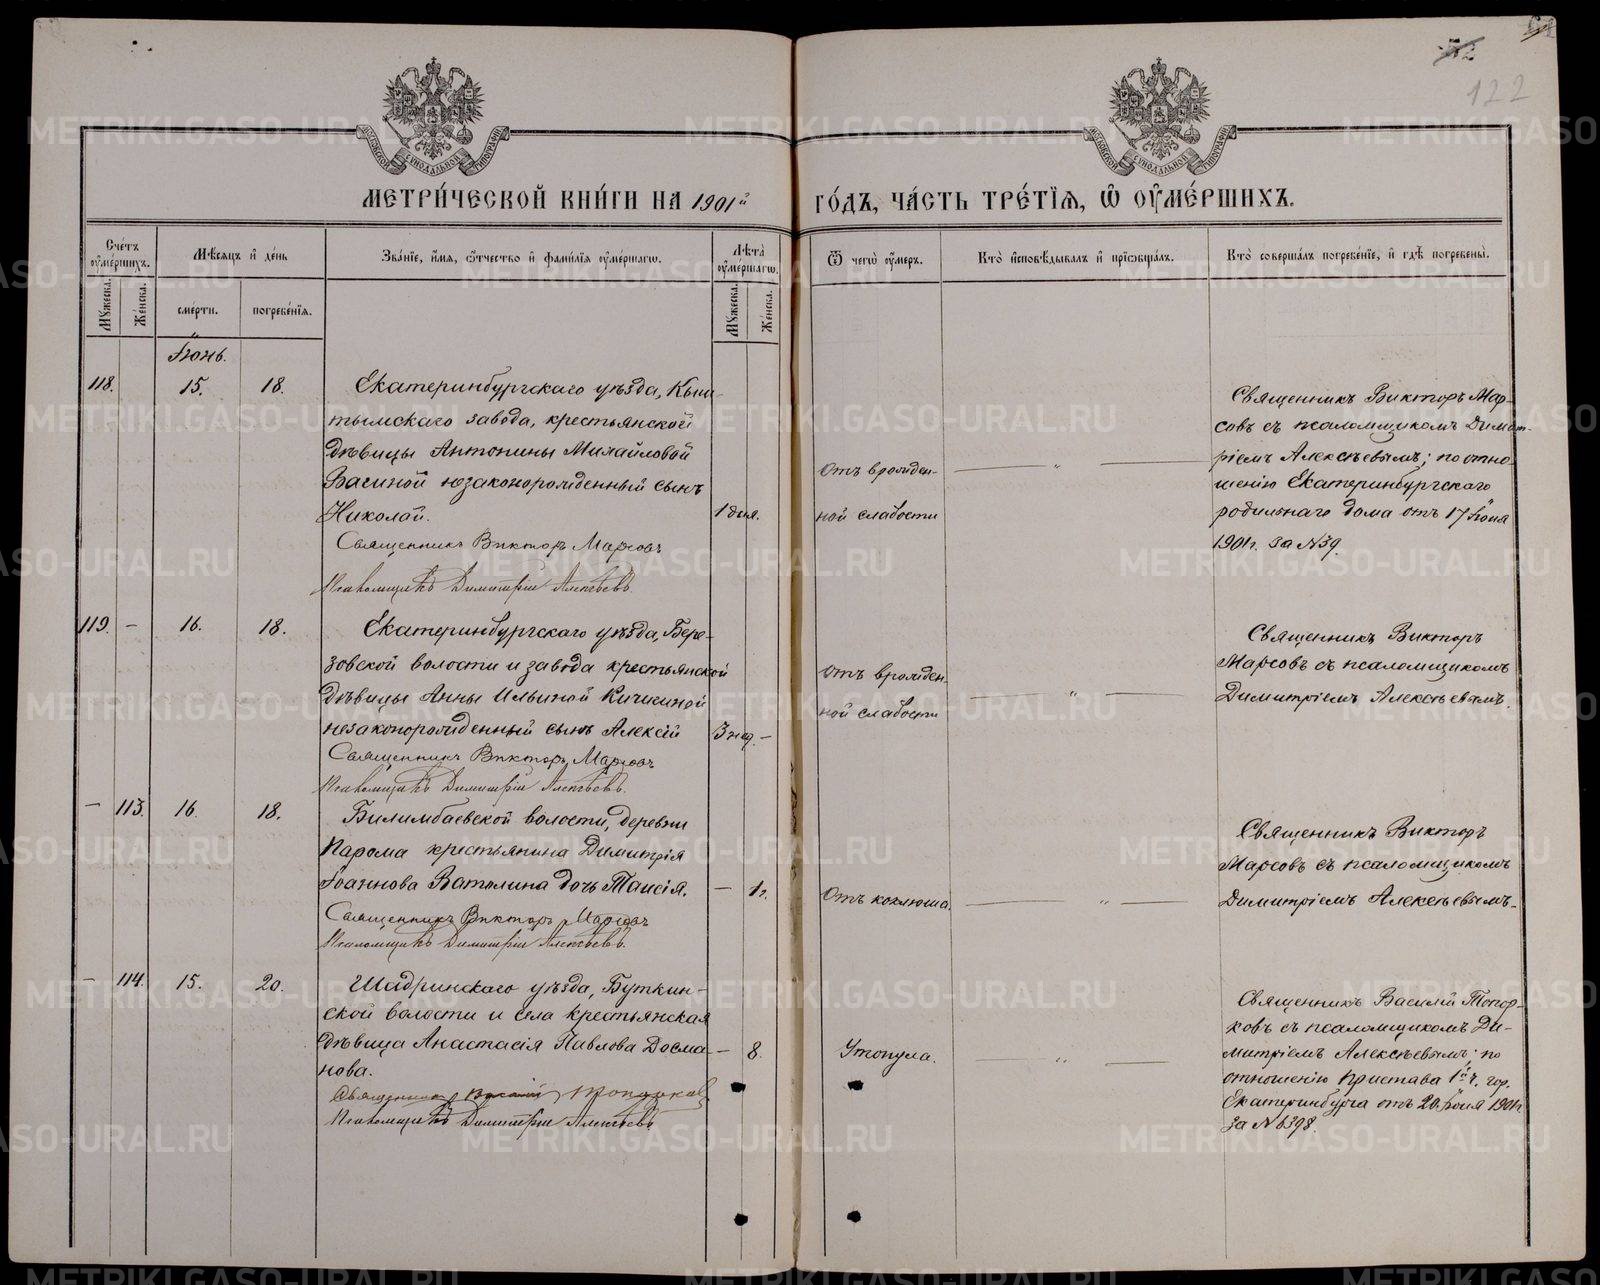 122
МОСКОВСКОЙ СѴНОДАЛЬНОЙ ТИПОГРАФІИ
МОСКОВСКОЙ СѴНОДАЛЬНОЙ ТИПОГРАФІИ
МЕТРИ́ЧЕСКОЙ КНИ́ГИ НА 1901й ГО́ДЪ, ЧА́СТЬ ТРЕ́ТІѦ, Ѡ҆ ОУ҆МЕ́РШИХЪ.
Сче́тъ оу҆ме́ршихъ.
Мѣ́сѧцъ и҆ де́нь
Зва́нїе, и҆́мѧ, ѻ҆́тчество и҆ фами́лїѧ оу҆ме́ршагѡ.
Лѣ́та оу҆ме́ршагѡ.
Ѿ чегѡ̀ оу҆́меръ.
Кто̀ и҆сповѣ́дывалъ и҆ прїѡбща́лъ.
Кто̀ соверша́лъ погребе́нїе, и҆ гдѣ̀ погребены̀.
Мꙋ́жеска.
Же́нска.
сме́рти.
погребе́нїѧ.
Мꙋ́жеска.
Же́нска.
Іюнь.
118. 15. 18.
Екатеринбургскаго уѣзда, Кыш-
тымскаго завода, крестьянской
дѣвицы Антонины Михайловой
Васиной незаконорожденный сынъ
Николай.
1 дня.
Священникъ Викторъ Марсовъ
Псаломщикъ Димитрій Алексѣевъ.
Отъ врожден-
ной слабости
Священникъ Викторъ Мар-
совъ съ псаломщикомъ Димит-
ріемъ Алексѣевымъ; по отно-
шенію Екатеринбургскаго
родильнаго дома отъ 17 Іюня
1901г. за №39.
119. – 16. 18.
Екатеринбургскаго уѣзда, Бере-
зовской волости и завода крестьянской
дѣвицы Анны Ильиной Кичкиной
незаконорожденный сынъ Алексій
3 нед. –
Священникъ Викторъ Марсовъ
Псаломщикъ Димитрій Алексѣевъ.
Отъ врожден-
ной слабости
Священникъ Викторъ
Марсовъ съ псаломщикомъ
Димитріемъ Алексѣевымъ.
– 113. 16. 18.
Билимбаевской волости, деревни
Крестьянина Димитрія
Іоаннова Ватолина дочь Таисія.
– 1г.
Священникъ Викторъ Марсовъ
Псаломщикъ Димитрій Алексѣевъ.
Отъ коклюша.
Священникъ Викторъ
Марсовъ съ псаломщикомъ
Димитріемъ Алексѣевымъ.
– 114. 15. 20.
Шадринскаго уѣзда, Буткин-
ской волости и села крестьянская
дѣвица Анастасія Павлова Досма-
нова.
– 8.
Священникъ Василій Топорковъ
Псаломщикъ Димитрій Алексѣевъ
Утонула.
Священникъ Василій Топор-
ковъ съ псаломщикомъ Ди-
митріемъ Алексѣевымъ; по
отношенію пристава 1й ч. гор.
Екатеринбурга отъ 20 Іюня 1901г
за №6398.
METRIKI.GASO-URAL.RU